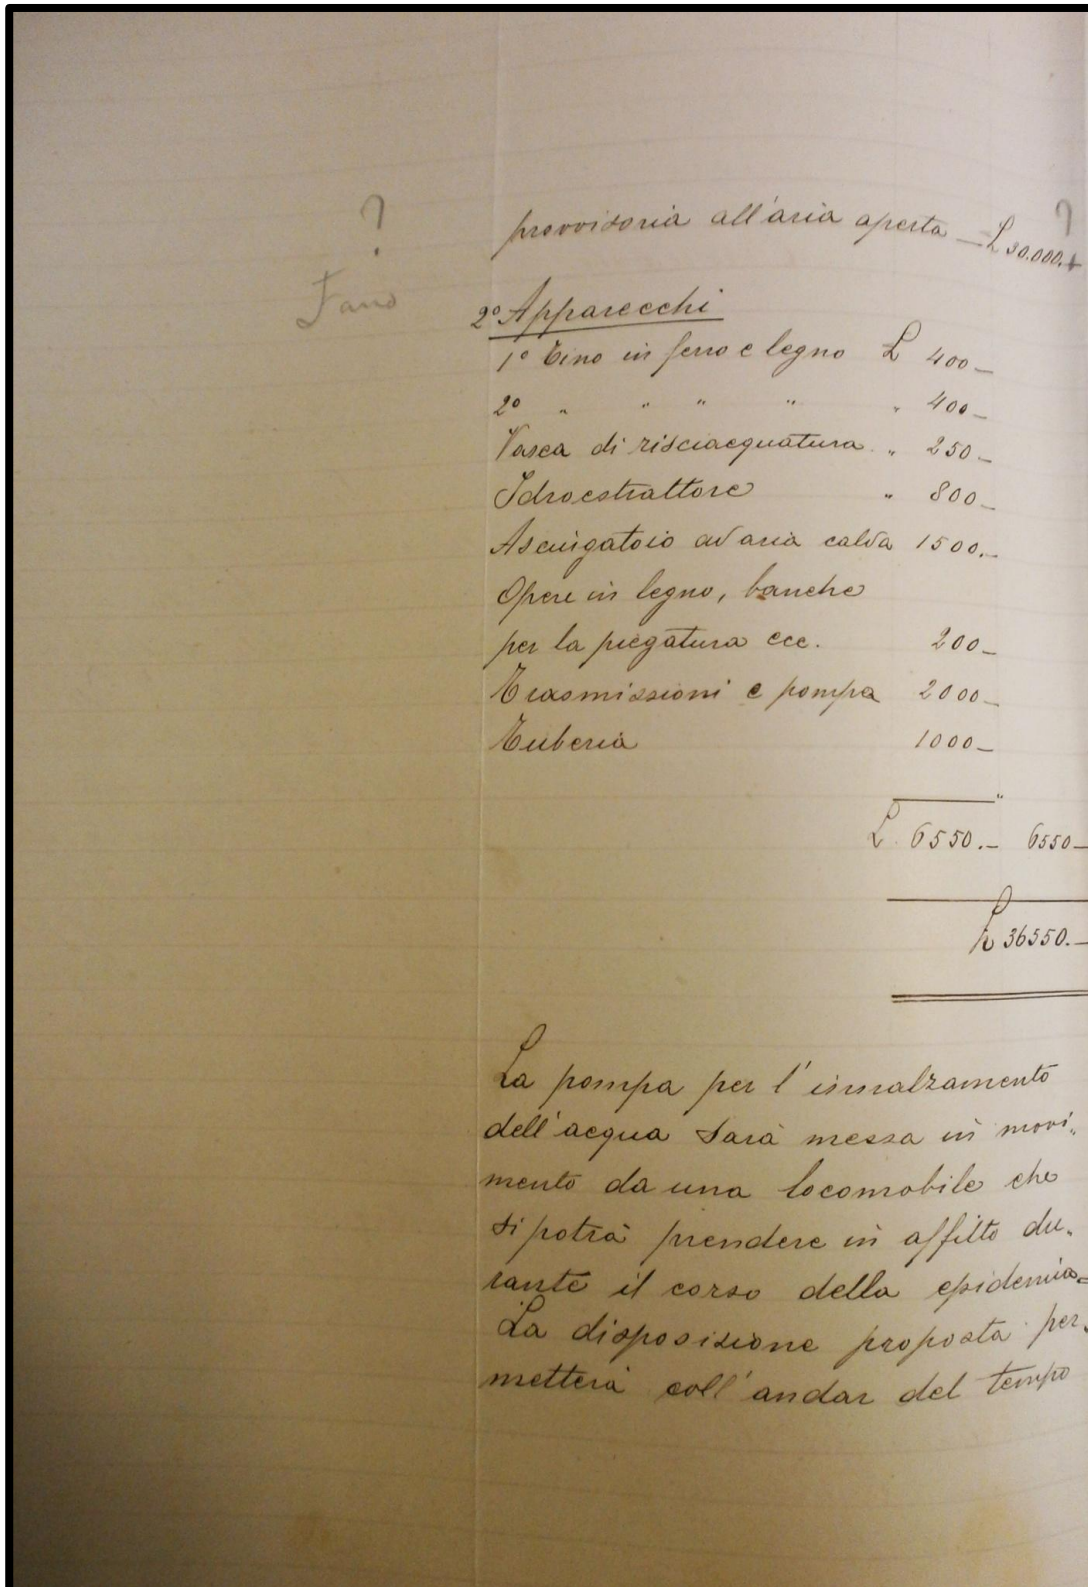 ?
provvisoria all'aria aperta — L 30.000.+
?
2º Apparecchi
1º Tino in ferro e legno L 400 —
2º " " " " " 400 —
Vasca di risciacquatura " 250 —
Idroestrattore " 800 —
Asciugatoio ad aria calda 1500.—
Opere in legno, banche
per la piegatura ecc. 200 —
Trasmissioni e pompa 2000 —
Tuberia 1000 —
"
L. 6550.— 6550 —
L 36550.—
La pompa per l'innalzamento
dell'acqua sarà messa in movi„
mento da una locomobile che
si potrà prendere in affitto du„
rante il corso della epidemia=
La disposizione proposta per„
metterà coll'andar del tempo